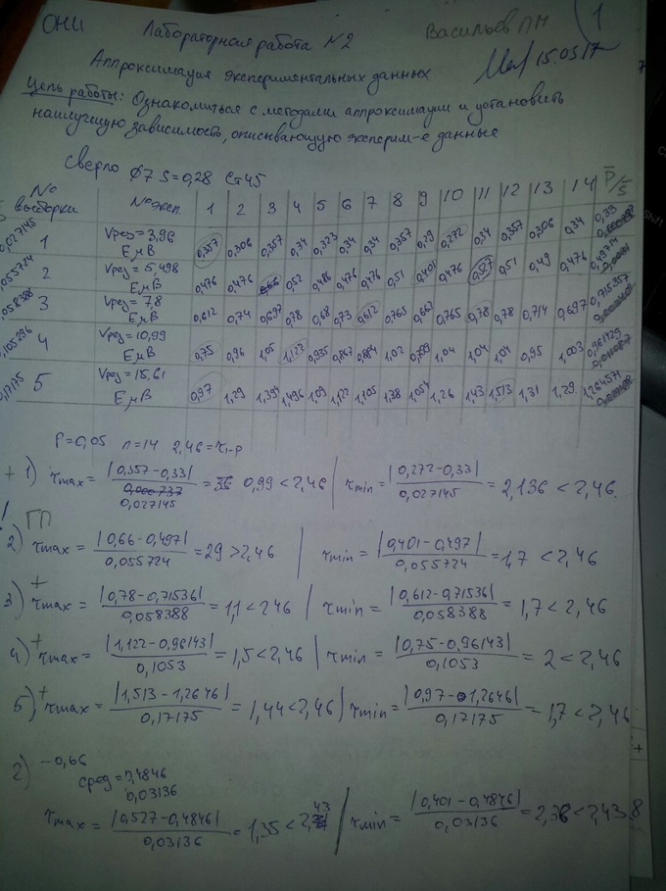 ОНИ Лабораторная работа №2 Васильев ПН 1
Аппроксимация экспериментальных данных 15.05.17
Цель работы: Ознакомиться с методами аппроксимации и установить
наилучшую зависимость, описывающую эксперим-е данные
Сверло ⌀7 S=0,28 Ст45
№ выборки № эксп. 1 2 3 4 5 6 7 8 9 10 11 12 13 14 P̄/S
0,027145 1 Vрез=3,96 E,мВ 0,357 0,306 0,357 0,34 0,323 0,34 0,34 0,357 0,29 0,272 0,34 0,357 0,306 0,34 0,33
0,055724 2 Vрез=5,498 E,мВ 0,476 0,476 0,66 0,52 0,486 0,476 0,476 0,51 0,401 0,476 0,527 0,51 0,49 0,476
0,058388 3 Vрез=7,8 E,мВ 0,612 0,74 0,697 0,78 0,68 0,73 0,612 0,765 0,662 0,765 0,78 0,78 0,714 0,697 0,715357
0,105296 4 Vрез=10,99 E,мВ 0,75 0,96 1,05 1,122 0,935 0,867 0,884 1,02 0,799 1,04 1,04 1,04 0,95 1,003 0,961429
0,17175 5 Vрез=15,61 E,мВ 0,97 1,29 1,394 1,496 1,09 1,122 1,105 1,38 1,054 1,26 1,43 1,513 1,31 1,29 1,264571
P=0,05 n=14 2,46=τ₁₋ₚ
+ 1) τmax = |0,357-0,33| / 0,027145 = 0,99 < 2,46 | τmin = |0,272-0,33| / 0,027145 = 2,136 < 2,46.
! ГП
2) τmax = |0,66-0,497| / 0,055724 = 29 > 2,46 | τmin = |0,401-0,497| / 0,055724 = 1,7 < 2,46
3) + τmax = |0,78-0,71536| / 0,058388 = 1,1 < 2,46 | τmin = |0,612-0,71536| / 0,058388 = 1,7 < 2,46
4) + τmax = |1,122-0,96143| / 0,1053 = 1,5 < 2,46 | τmin = |0,75-0,96143| / 0,1053 = 2 < 2,46
5) + τmax = |1,513-1,2646| / 0,17175 = 1,44 < 2,46 | τmin = |0,97-1,2646| / 0,17175 = 1,7 < 2,46
2) -0,66
сред = 0,4846
0,03136
τmax = |0,527-0,4846| / 0,03136 = 1,35 < 2,43 | τmin = |0,401-0,4846| / 0,03136 = 2,36 < 2,43